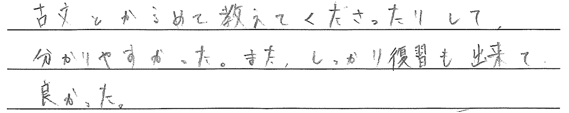 古文とからめて教えてくださったりして、
分かりやすかった。また、しっかり復習も出来て
良かった。